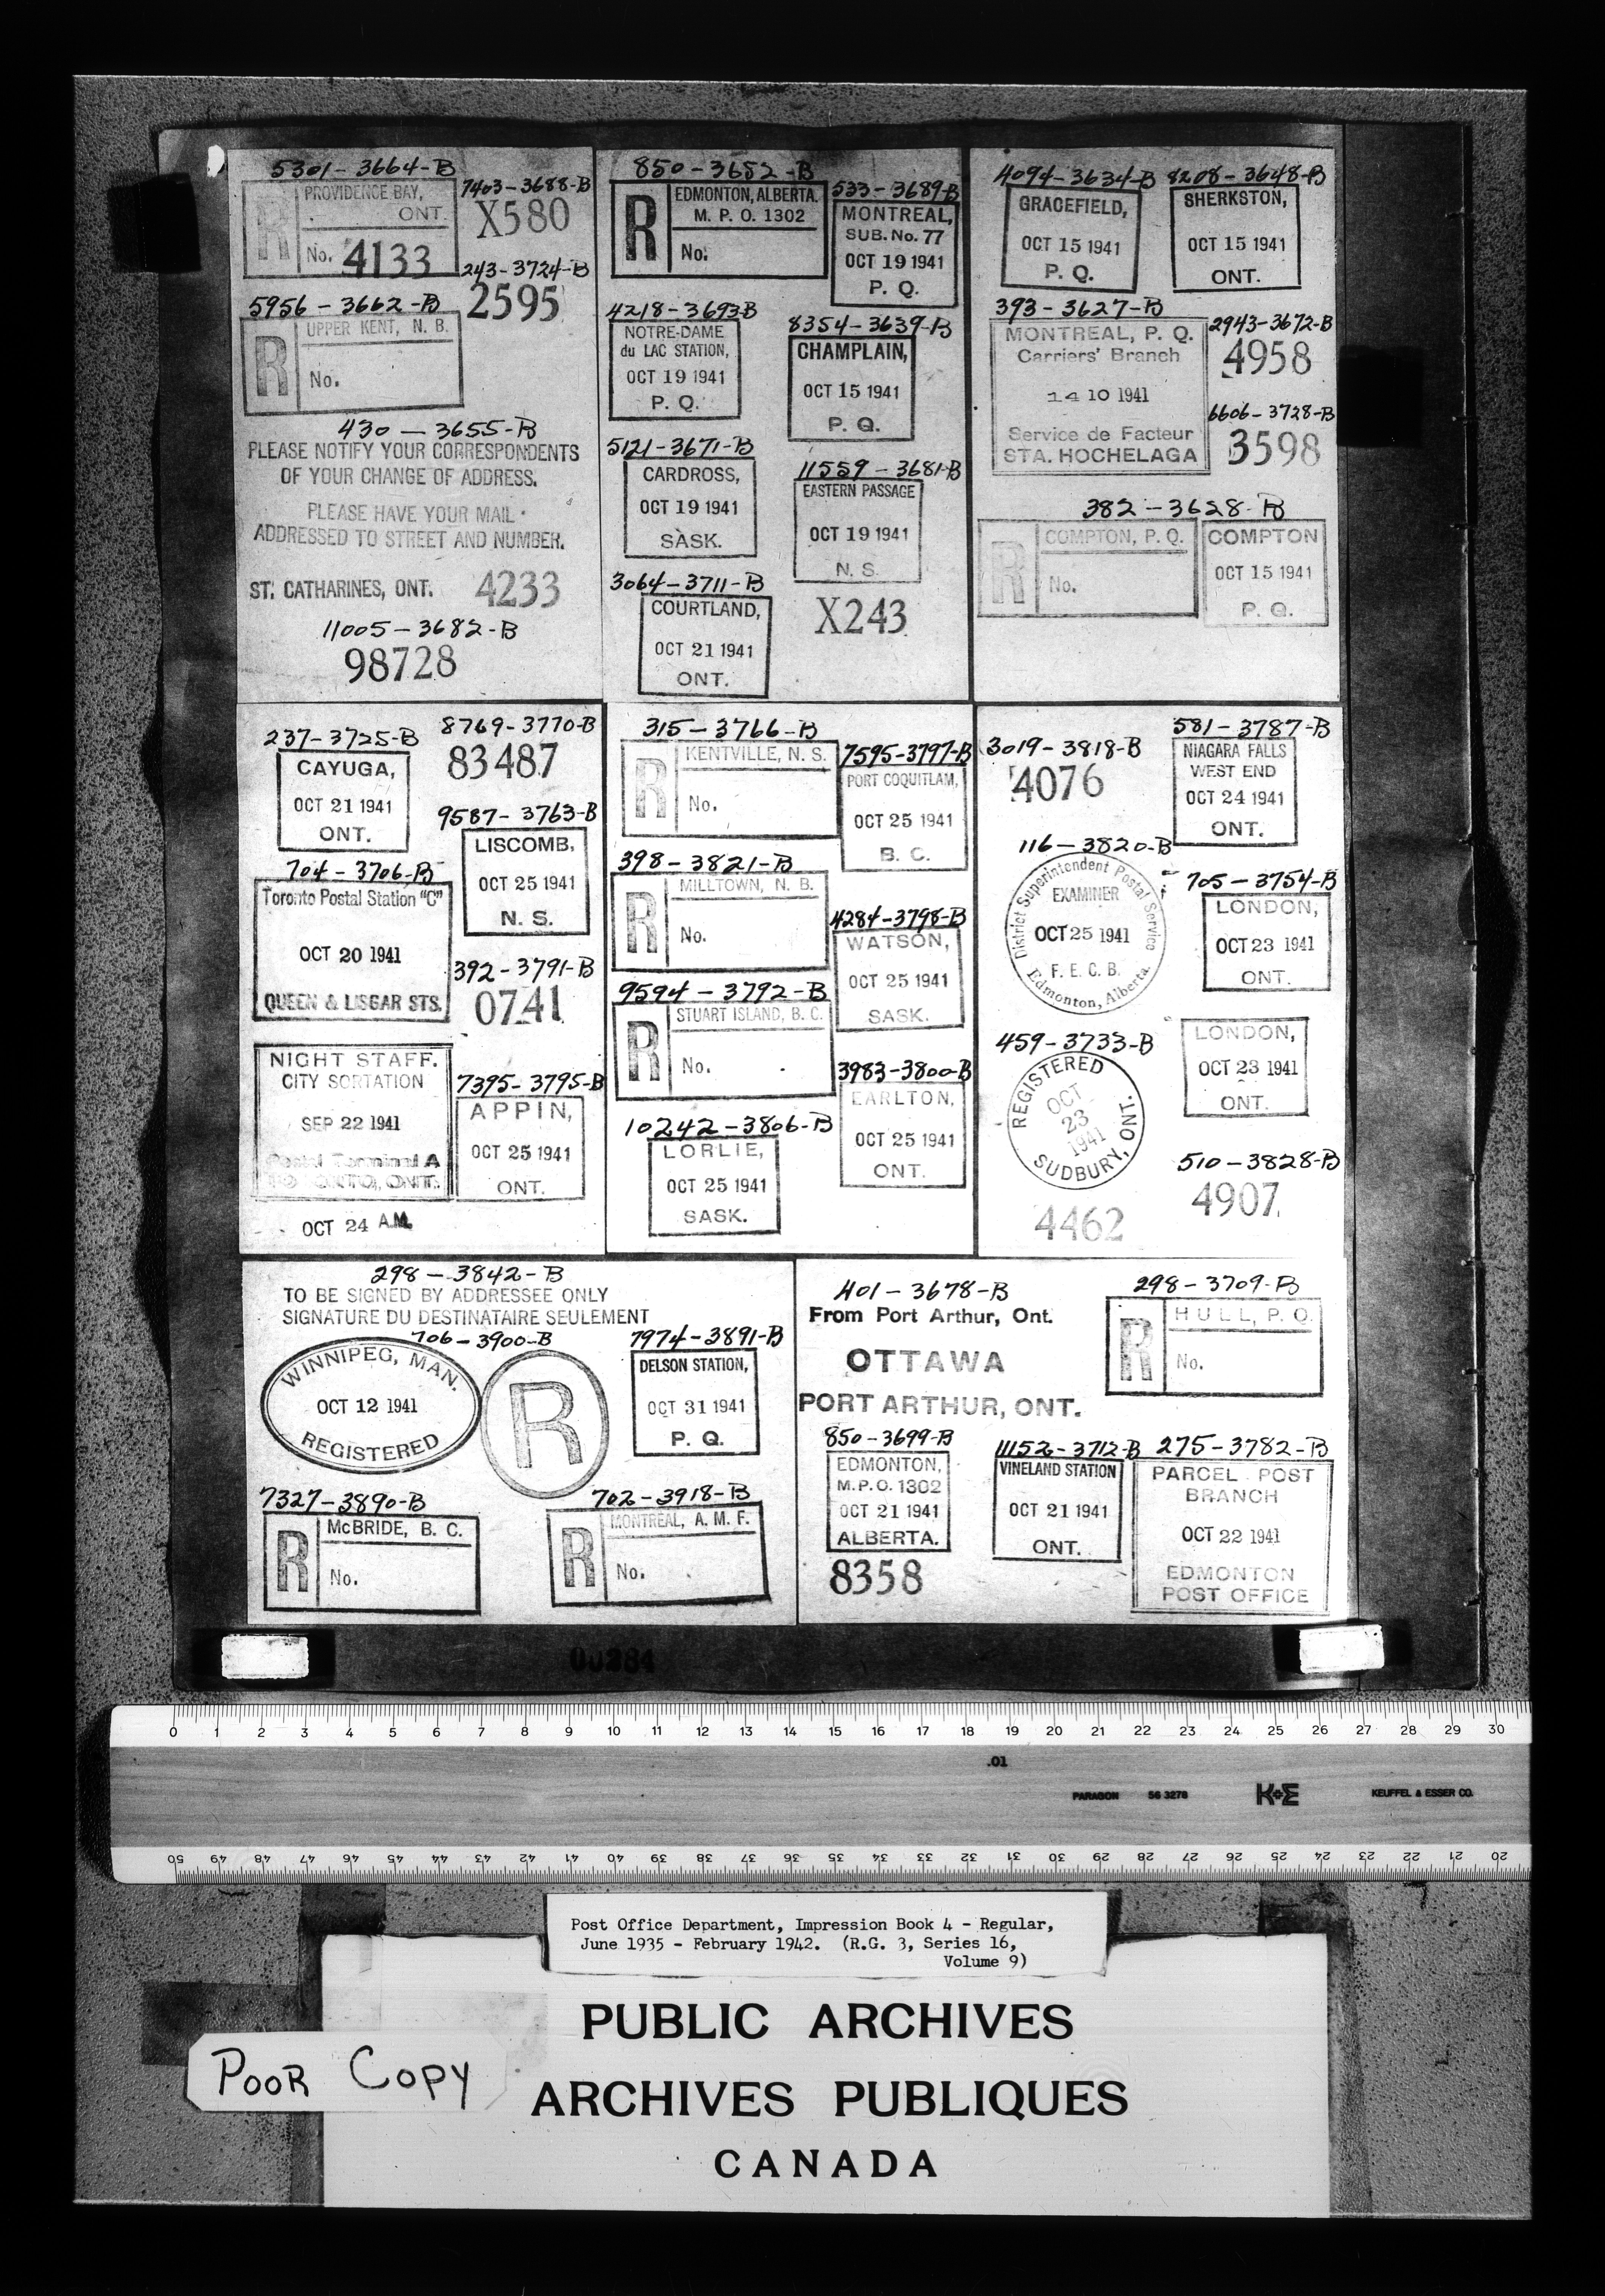 5301-3664-B
PROVIDENCE BAY,
ONT.
R
No. 4133
7403-3688-B
X580
243-3724-B
2595
5956-3662-B
UPPER KENT, N. B.
R
No.
430-3655-B
PLEASE NOTIFY YOUR CORRESPONDENTS
OF YOUR CHANGE OF ADDRESS.
PLEASE HAVE YOUR MAIL
ADDRESSED TO STREET AND NUMBER.
ST. CATHARINES, ONT. 4233
11005-3682-B
98728
850-3652-B
EDMONTON, ALBERTA.
M. P. O. 1302
R
No.
533-3689-B
MONTREAL,
SUB. No. 77
OCT 19 1941
P. Q.
4218-3693-B
NOTRE-DAME
du LAC STATION,
OCT 19 1941
P. Q.
8354-3639-B
CHAMPLAIN,
OCT 15 1941
P. Q.
5121-3671-B
CARDROSS,
OCT 19 1941
SASK.
11559-3681-B
EASTERN PASSAGE
OCT 19 1941
N. S.
3064-3711-B
COURTLAND,
OCT 21 1941
ONT.
X243
4094-3634-B
GRACEFIELD,
OCT 15 1941
P. Q.
8208-3648-B
SHERKSTON,
OCT 15 1941
ONT.
393-3627-B
MONTREAL, P. Q.
Carriers' Branch
14 10 1941
Service de Facteur
STA. HOCHELAGA
2943-3672-B
4958
6606-3728-B
3598
382-3628-B
COMPTON, P. Q.
R
No.
COMPTON
OCT 15 1941
P. Q.
237-3725-B
CAYUGA,
OCT 21 1941
ONT.
8769-3770-B
83487
9587-3763-B
LISCOMB,
OCT 25 1941
N. S.
704-3706-B
Toronto Postal Station "C"
OCT 20 1941
QUEEN & LISGAR STS.
392-3791-B
0741
NIGHT STAFF.
CITY SORTATION
SEP 22 1941
Postal Terminal A
TORONTO, ONT.
OCT 24 A.M.
7395-3795-B
APPIN,
OCT 25 1941
ONT.
315-3766-B
KENTVILLE, N. S.
R
No.
7595-3797-B
PORT COQUITLAM,
OCT 25 1941
B. C.
398-3821-B
MILLTOWN, N. B.
R
No.
4284-3798-B
WATSON,
OCT 25 1941
SASK.
9594-3792-B
STUART ISLAND, B. C.
R
No.
3983-3800-B
EARLTON,
OCT 25 1941
ONT.
10242-3806-B
LORLIE,
OCT 25 1941
SASK.
3019-3818-B
4076
581-3787-B
NIAGARA FALLS
WEST END
OCT 24 1941
ONT.
116-3820-B
District Superintendent Postal Service
EXAMINER
OCT 25 1941
F. E. C. B.
Edmonton, Alberta.
705-3754-B
LONDON,
OCT 23 1941
ONT.
459-3733-B
REGISTERED
OCT
23
1941
SUDBURY, ONT.
4462
LONDON,
OCT 23 1941
ONT.
510-3828-B
4907
298-3842-B
TO BE SIGNED BY ADDRESSEE ONLY
SIGNATURE DU DESTINATAIRE SEULEMENT
706-3900-B
WINNIPEG, MAN.
OCT 12 1941
REGISTERED
R
7974-3891-B
DELSON STATION,
OCT 31 1941
P. Q.
7327-3890-B
McBRIDE, B. C.
R
No.
702-3918-B
MONTREAL, A. M. F.
R
No.
401-3678-B
From Port Arthur, Ont.
OTTAWA
PORT ARTHUR, ONT.
298-3709-B
HULL, P. Q.
R
No.
850-3699-B
EDMONTON,
M.P.O. 1302
OCT 21 1941
ALBERTA.
8358
11152-3712-B
VINELAND STATION
OCT 21 1941
ONT.
275-3782-B
PARCEL POST
BRANCH
OCT 22 1941
EDMONTON
POST OFFICE
00284
0 1 2 3 4 5 6 7 8 9 10 11 12 13 14 15 16 17 18 19 20 21 22 23 24 25 26 27 28 29 30
.01
PARAGON 56 3276 K+E KEUFFEL & ESSER CO.
50 49 48 47 46 45 44 43 42 41 40 39 38 37 36 35 34 33 32 31 30 29 28 27 26 25 24 23 22 21 20
Post Office Department, Impression Book 4 - Regular,
June 1935 - February 1942. (R.G. 3, Series 16,
Volume 9)
PUBLIC ARCHIVES
POOR COPY
ARCHIVES PUBLIQUES
CANADA